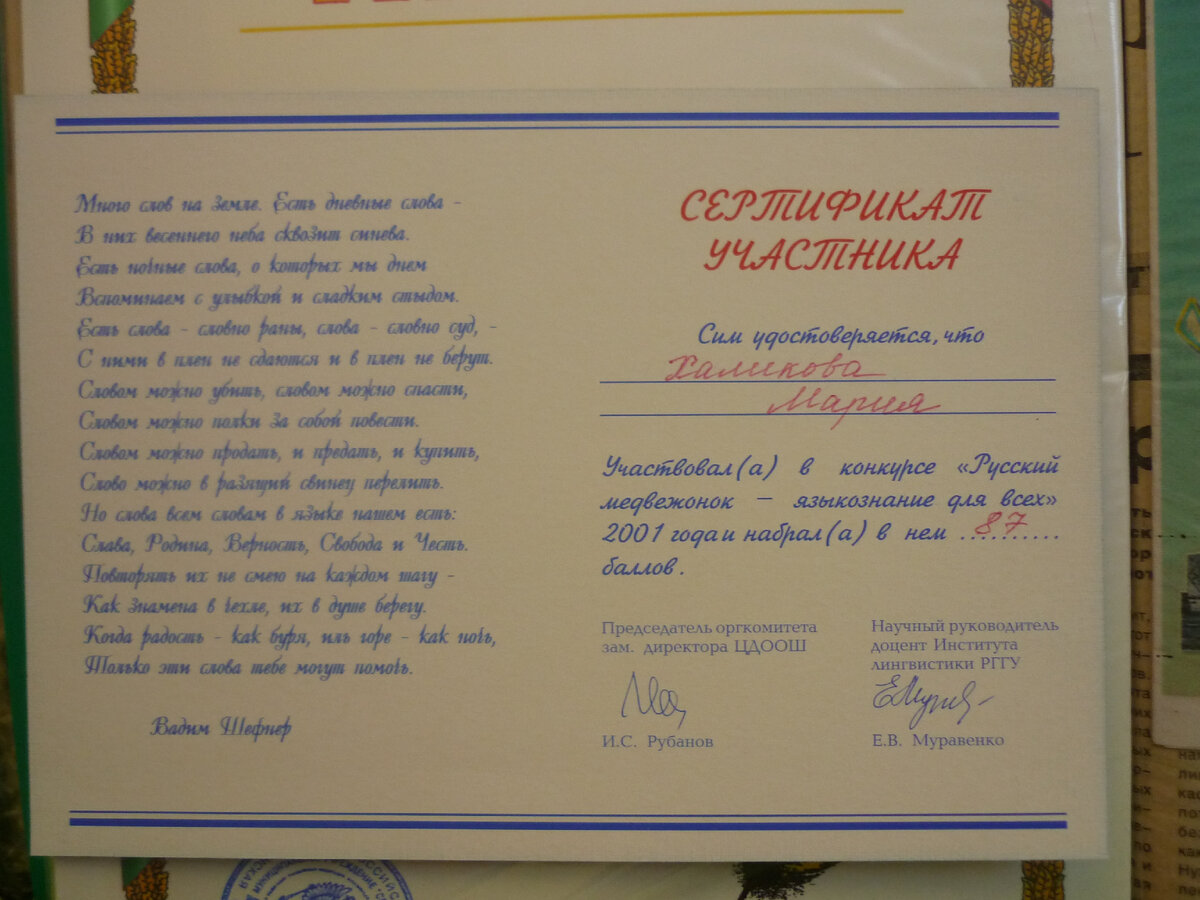 Много слов на земле. Есть дневные слова -
В них весеннего неба сквозит синева.
Есть ночные слова, о которых мы днем
Вспоминаем с улыбкой и сладким стыдом.
Есть слова - словно раны, слова - словно суд, -
С ними в плен не сдаются и в плен не берут.
Словом можно убить, словом можно спасти,
Словом можно полки за собой повести.
Словом можно продать, и предать, и купить,
Слово можно в разящий свинец перелить.
Но слова всем словам в языке нашем есть:
Слава, Родина, Верность, Свобода и Честь.
Повторять их не смею на каждом шагу -
Как знамена в чехле, их в душе берегу.
Когда радость - как буря, иль горе - как ночь,
Только эти слова тебе могут помочь.
Вадим Шефнер
СЕРТИФИКАТ
УЧАСТНИКА
Сим удостоверяется, что
Халикова
Мария
Участвовал(а) в конкурсе «Русский
медвежонок — языкознание для всех»
2001 года и набрал(а) в нем ..87....
баллов.
Председатель оргкомитета
зам. директора ЦДООШ
И.С. Рубанов
Научный руководитель
доцент Института
лингвистики РГГУ
Е.В. Муравенко